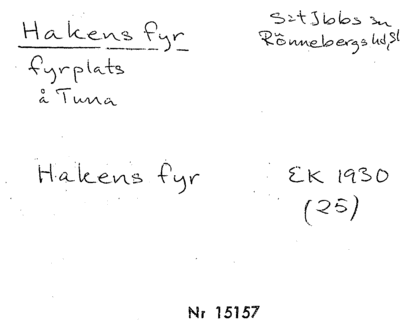 Hakens fyr
fyrplats
å Tuna
S:t Ibbs sn
Rönnebergs hd,
Hakens fyr
EK 1930
(25)
Nr 15157